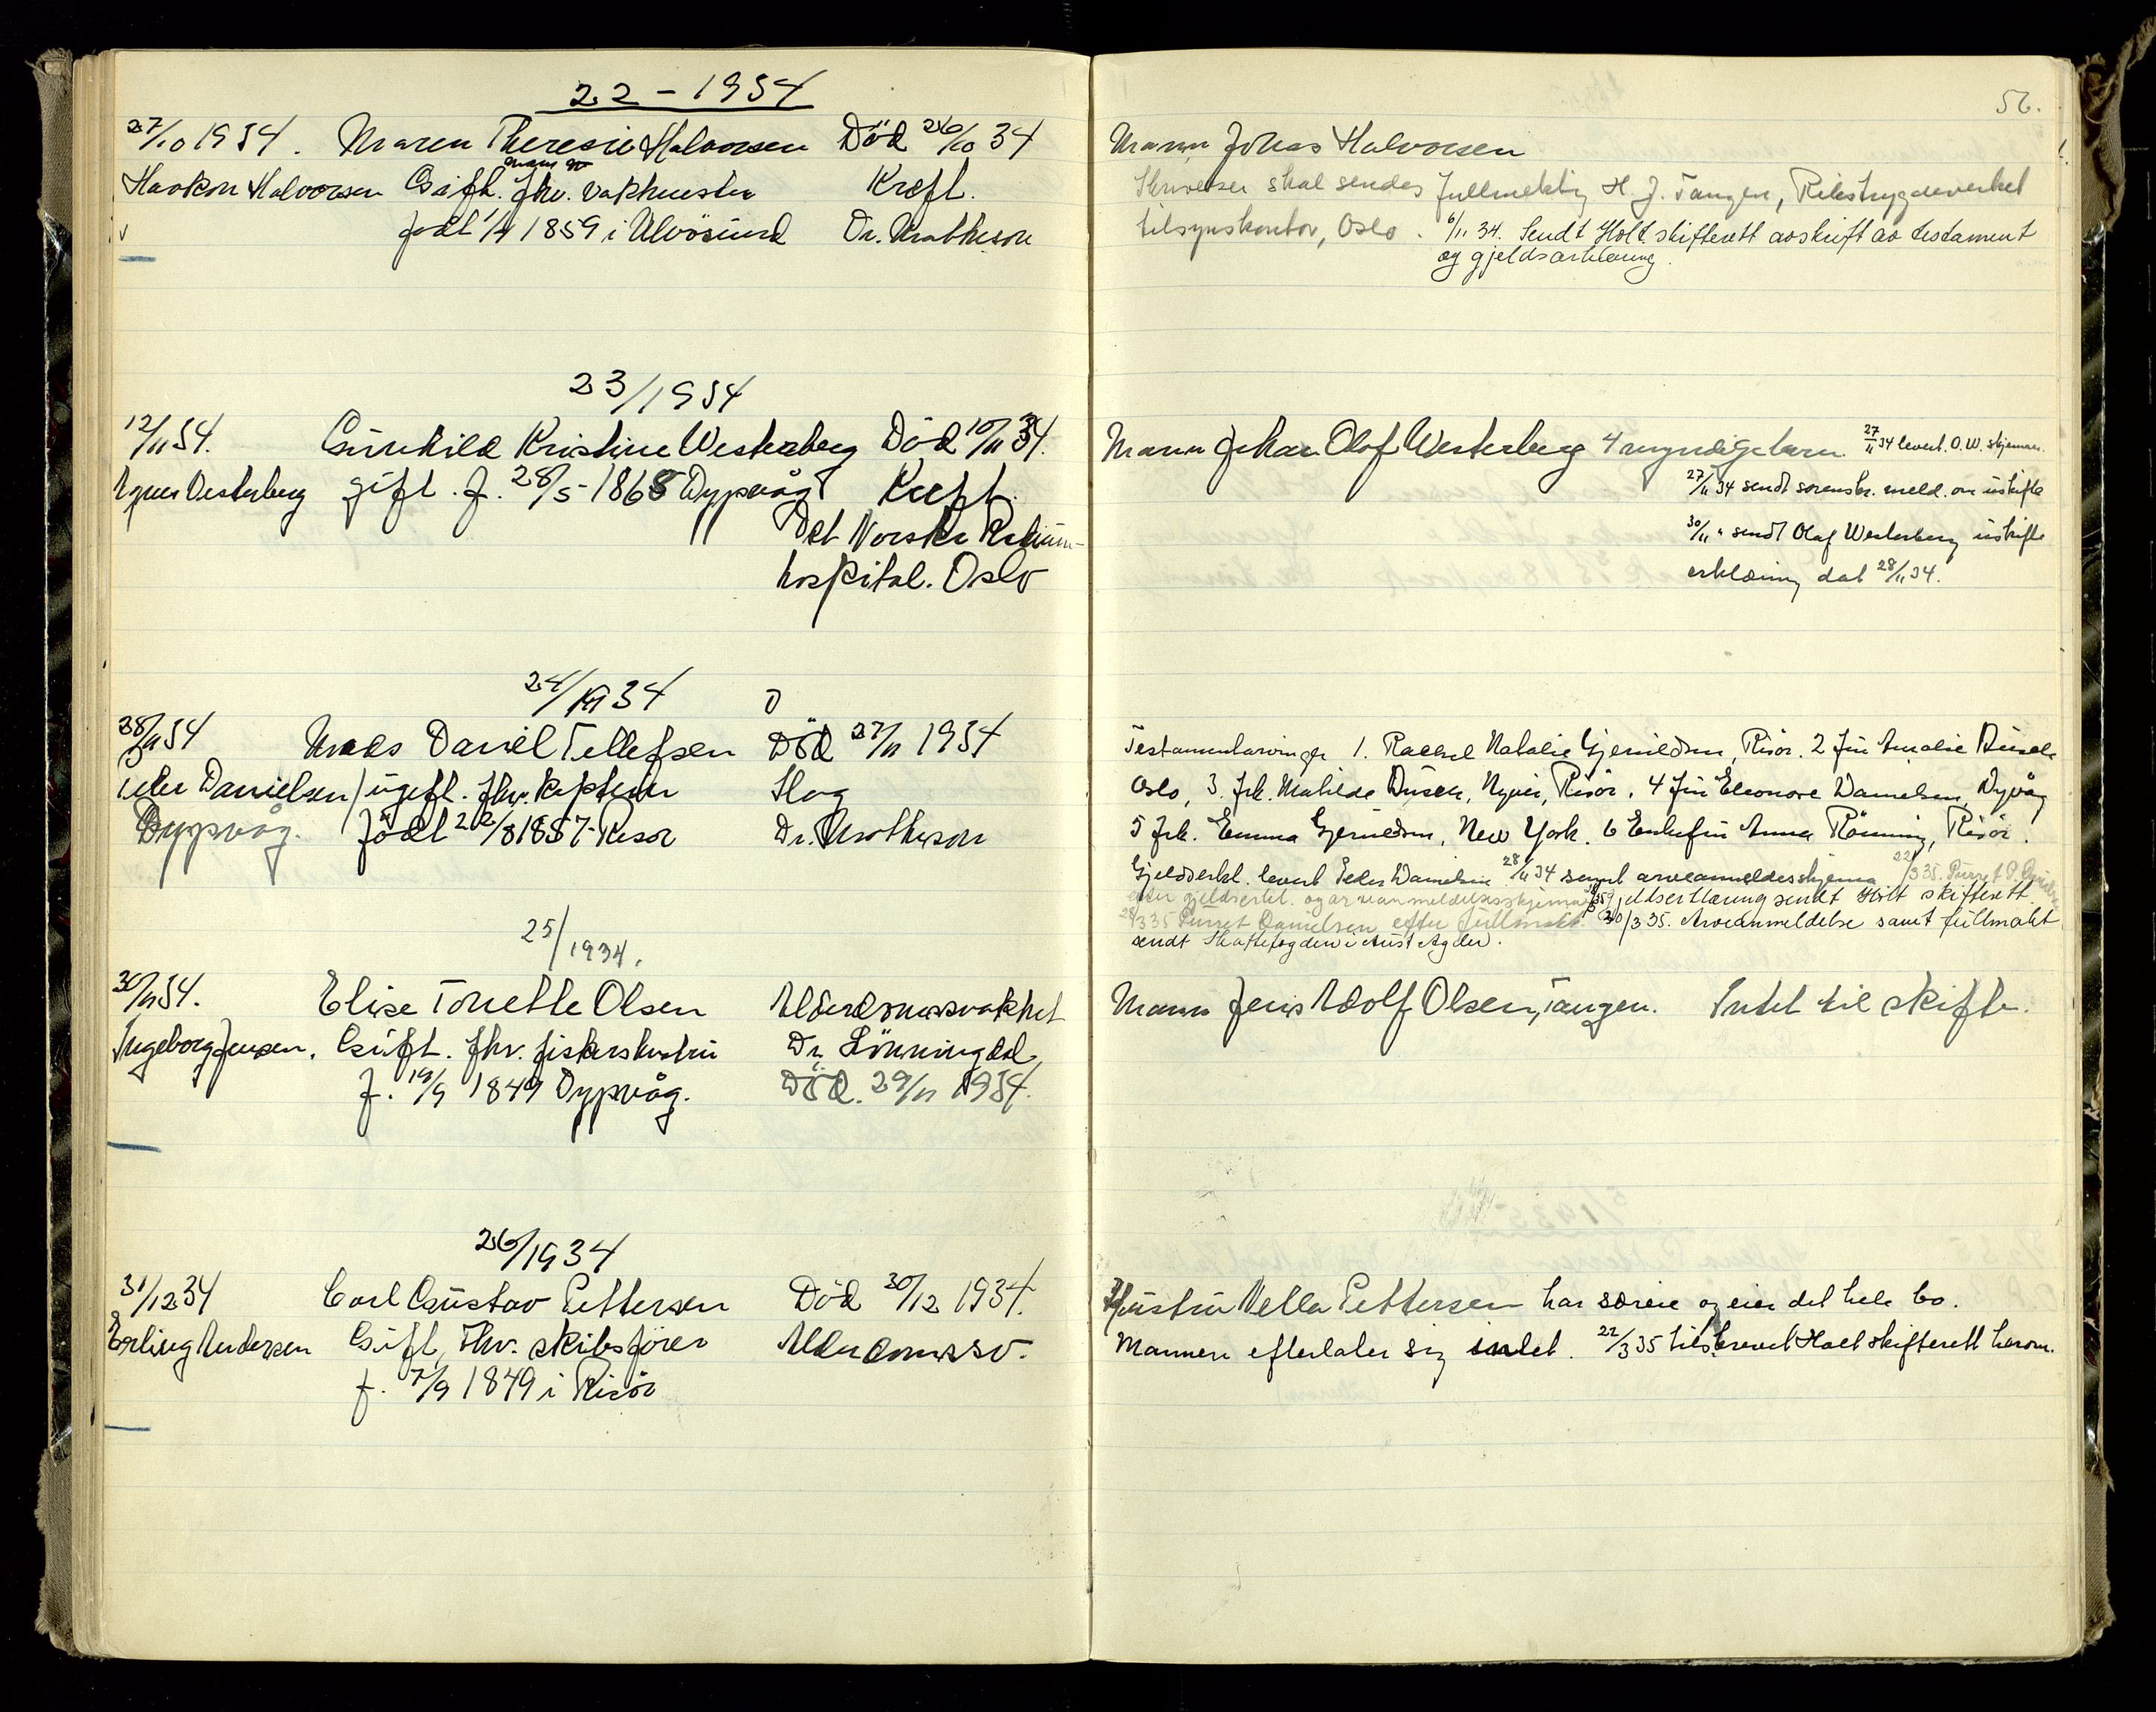 22 - 1934
56.
27/10 1934. Maren Theresie Halvorsen Död 26/10 34
Haakon Halvorsen Gift. fhv. vaktmester Kreft.
född 1859 i Ulvösund Dr. Mathieson
Mann Johas Halvorsen
Skrivelser skal sendes fullmektig H. J. Tangen, Rikstrygdeverket
tilsynskontor, Oslo. 6/11 34. Sendt Holt skifterett avskrift av testament
og gjeldserklæring.
23/1934
12/11 34. Gunhild Kristine Westerberg Död 10/11 34.
Agnes Westerberg gift. f. 28/5 1865 Dypvåg Kreft.
Det Norske Radium-
hospital. Oslo
Mann Johan Olof Westerberg 4 myndige barn. 27/11 34 levert O. W. skjema.
27/11 34 sendt sorenskr. meld. om uskifte
30/11 " sendt Olaf Westerberg uskifte
erklæring dat 28/11 34.
24/1934
28/11 34 Mads Daniel Tellefsen Död 27/11 1934
Peder Danielsen ugift. fhv. kaptein Slag
Dypvåg. född 22/8 1857 Risör Dr. Mathieson
Testamentarvinger 1. Rachel Natalie Gjeruldsen, Risör. 2 Fru Amalie Dusch
Oslo, 3. Frk. Mathilde Dusch, Risör. 4 Fru Eleonore Danielsen, Dypvåg
5 Frk. Emma Gjeruldsen, New York. 6 Enkefru Anna Rönning, Risör.
Gjeldserkl. levert Peder Danielsen 28/11 34 samt arveanmeldesskjema 22/3 35. Purret P. Danielsen
efter gjeldserkl. og arveanmeldelsesskjema gjeldserklæring sendt Holt skifterett
28/3 35 Purret Danielsen efter fullmakt. 30/3 35. Arveanmeldelse samt fullmakt
sendt Skattefogden i Aust Agder.
25/1934.
30/11 34. Elise Tonette Olsen Alderdomssvakhet
Ingeborg Jensen. Gift. fhv. fiskerhustru Dr. Lönningdal
f. 19/9 1849 Dypvåg. Död. 29/11 1934.
Mann Jens Adolf Olsen, Tangen. Intet til skifte.
26/1934
31/12 34 Carl Gustav Pettersen Död 30/12 1934.
Erling Andersen Gift, Fhv. skibsförer Alderdomssv.
f. 7/9 1849 i Risör
Hustru Nella Pettersen har særeie og eier det hele bo.
Mannen efterlater sig intet. 22/3 35 tilskrevet Holt skifterett herom.